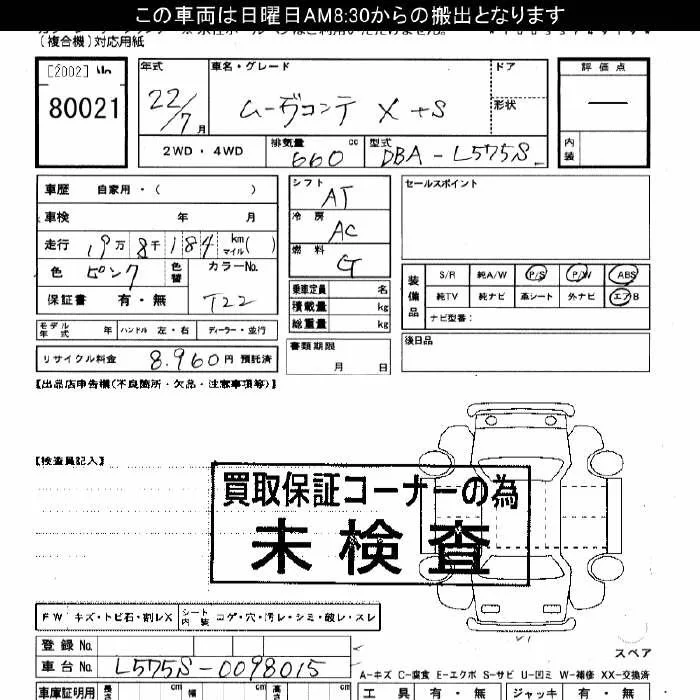 この車両は日曜日AM8:30からの搬出となります
(複合機)対応用紙
[2002]
80021
年式 車名・グレード ドア 評価点
22/7月 ムーヴコンテ X+S 形状 —
2WD・4WD 排気量 cc 型式 内装
660 DBA-L575S
車歴 自家用・( ) シフト AT セールスポイント
車検 年 月 冷房 AC
走行 19万8千184km マイル( ) 燃料 G
色 ピンク 色替 カラーNo. 装備品 S/R 純A/W P/S P/W ABS
保証書 有・無 T22 乗車定員 名 純TV 純ナビ 革シート 外ナビ エアB
積載量 kg ナビ型番:
モデル年式 年 ハンドル 左・右 ディーラー・並行 総重量 kg
リサイクル料金 8.960円 預託済 書類期限 月 日 後日品
【出品店申告欄(不良箇所・欠品・注意事項等)】
【検査員記入】
買取保証コーナーの為
未検査
FW キズ・トビ石・割レX シート内装 コゲ・穴・汚レ・シミ・破レ・スレ
登録No.
スペア
車台No. L575S-0098015
A-キズ C-腐食 E-エクボ S-サビ U-凹ミ W-補修 XX-交換済
車庫証明用 長さ cm 幅 cm 高さ cm 工具 有・無 ジャッキ 有・無